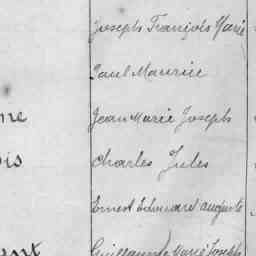 Joseph François Marie
Paul Maurice
ne Jean Marie Joseph
ois Charles Jules
Ernest Edouard Auguste
ent Guillaume Marie Joseph